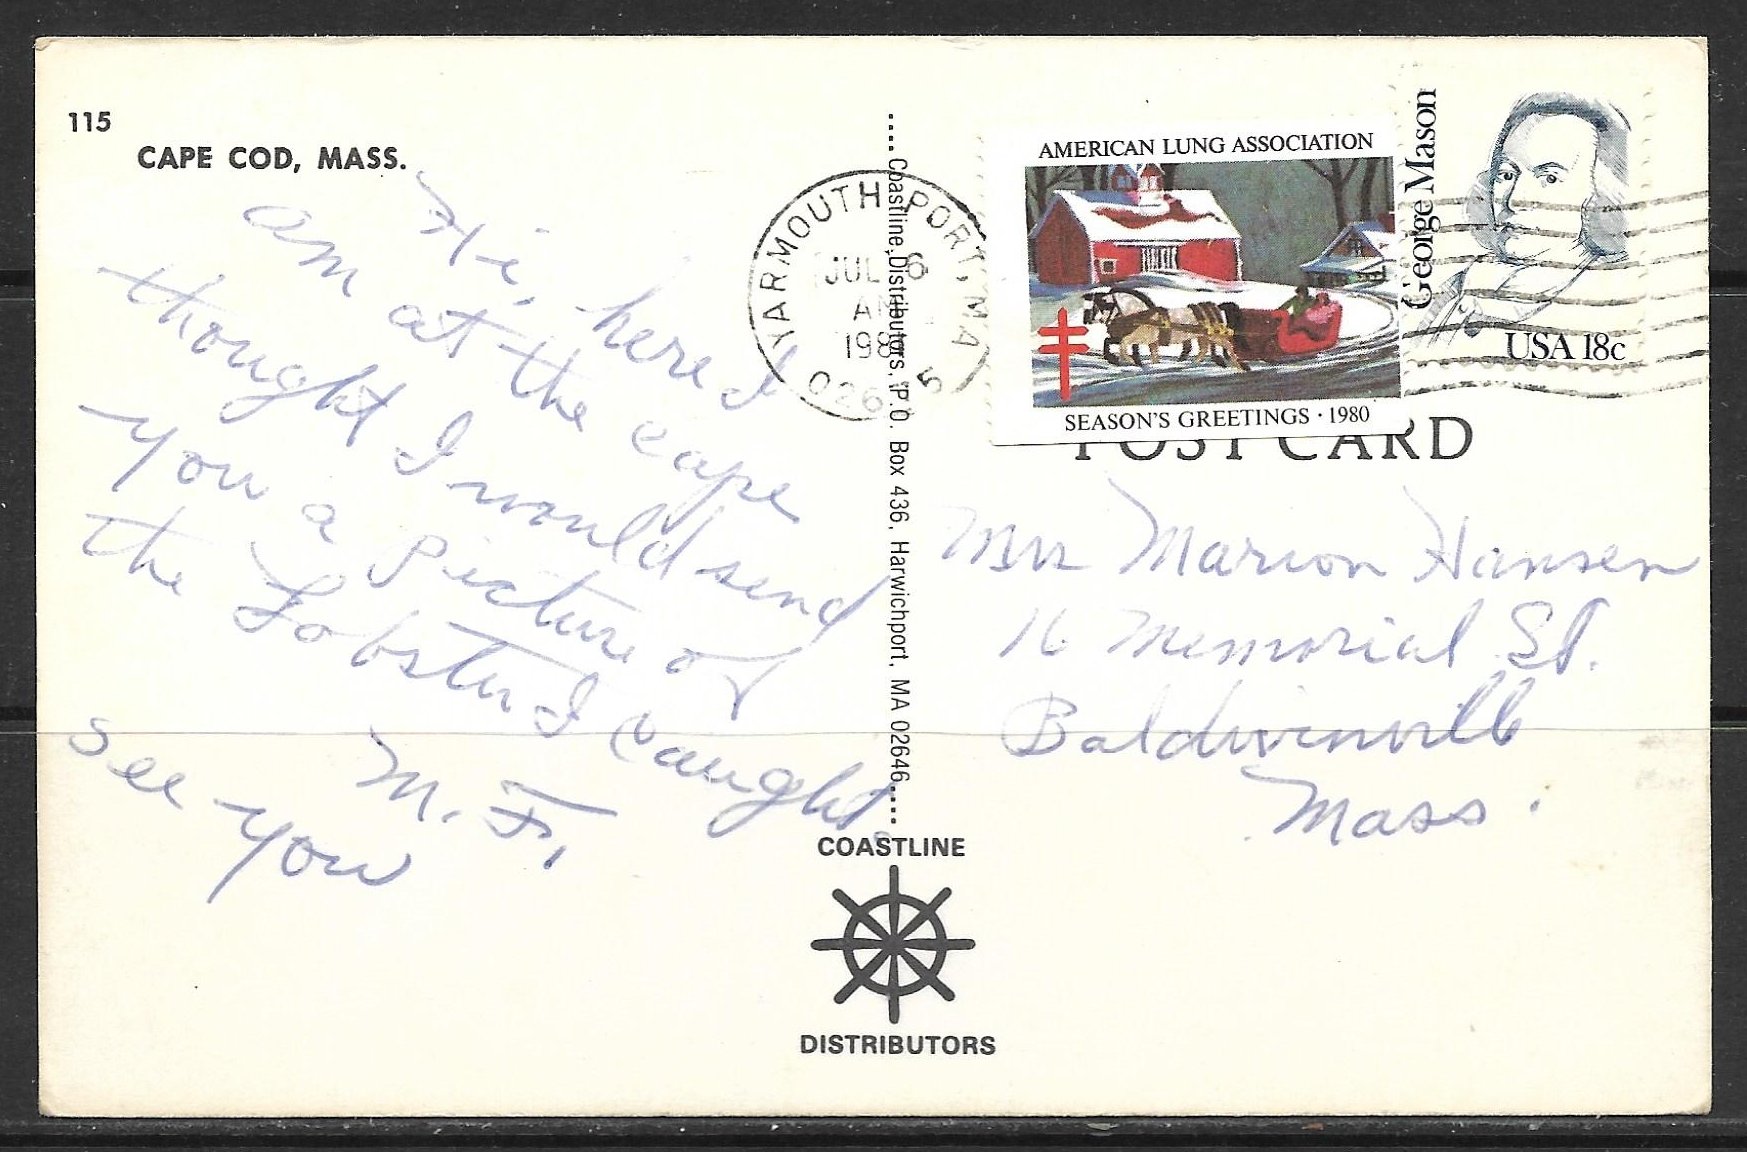 115
CAPE COD, MASS.
Hi, here I
am at the cape
thought I would send
you a Picture of
the Lobster I caught.
M. F.
see you
.... Coastline Distributors, P.O. Box 436, Harwichport, MA 02646....
COASTLINE
DISTRIBUTORS
YARMOUTH PORT, MA
JUL 6
AM
198
026 5
AMERICAN LUNG ASSOCIATION
SEASON'S GREETINGS · 1980
George Mason
USA 18c
POST CARD
Mrs Marion Hansen
16 Memorial St.
Baldwinville
Mass.